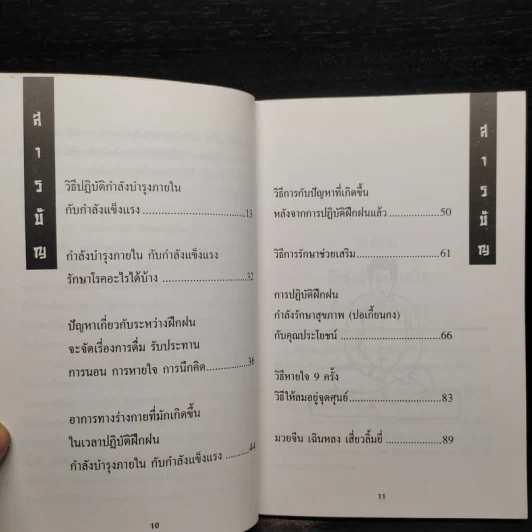 สารบัญ
วิธีปฏิบัติกำลังบำรุงภายใน
กับกำลังแข็งแรง ................................ 13
กำลังบำรุงภายใน กับกำลังแข็งแรง
รักษาโรคอะไรได้บ้าง ........................... 32
ปัญหาเกี่ยวกับระหว่างฝึกฝน
จะจัดเรื่องการดื่ม รับประทาน
การนอน การหายใจ การนึกคิด ............. 36
อาการทางร่างกายที่มักเกิดขึ้น
ในเวลาปฏิบัติฝึกฝน
กำลังบำรุงภายใน กับกำลังแข็งแรง ........ 44
10
สารบัญ
วิธีการกับปัญหาที่เกิดขึ้น
หลังจากการปฏิบัติฝึกฝนแล้ว ............... 50
วิธีการรักษาช่วยเสริม .......................... 61
การปฏิบัติฝึกฝน
กำลังรักษาสุขภาพ (ปอเกี้ยนกง)
กับคุณประโยชน์ ................................ 66
วิธีหายใจ 9 ครั้ง
วิธีให้ลมอยู่จุดศูนย์ ............................. 83
มวยจีน เฉินหลง เสี่ยวลิ้มยี่ ................... 89
11